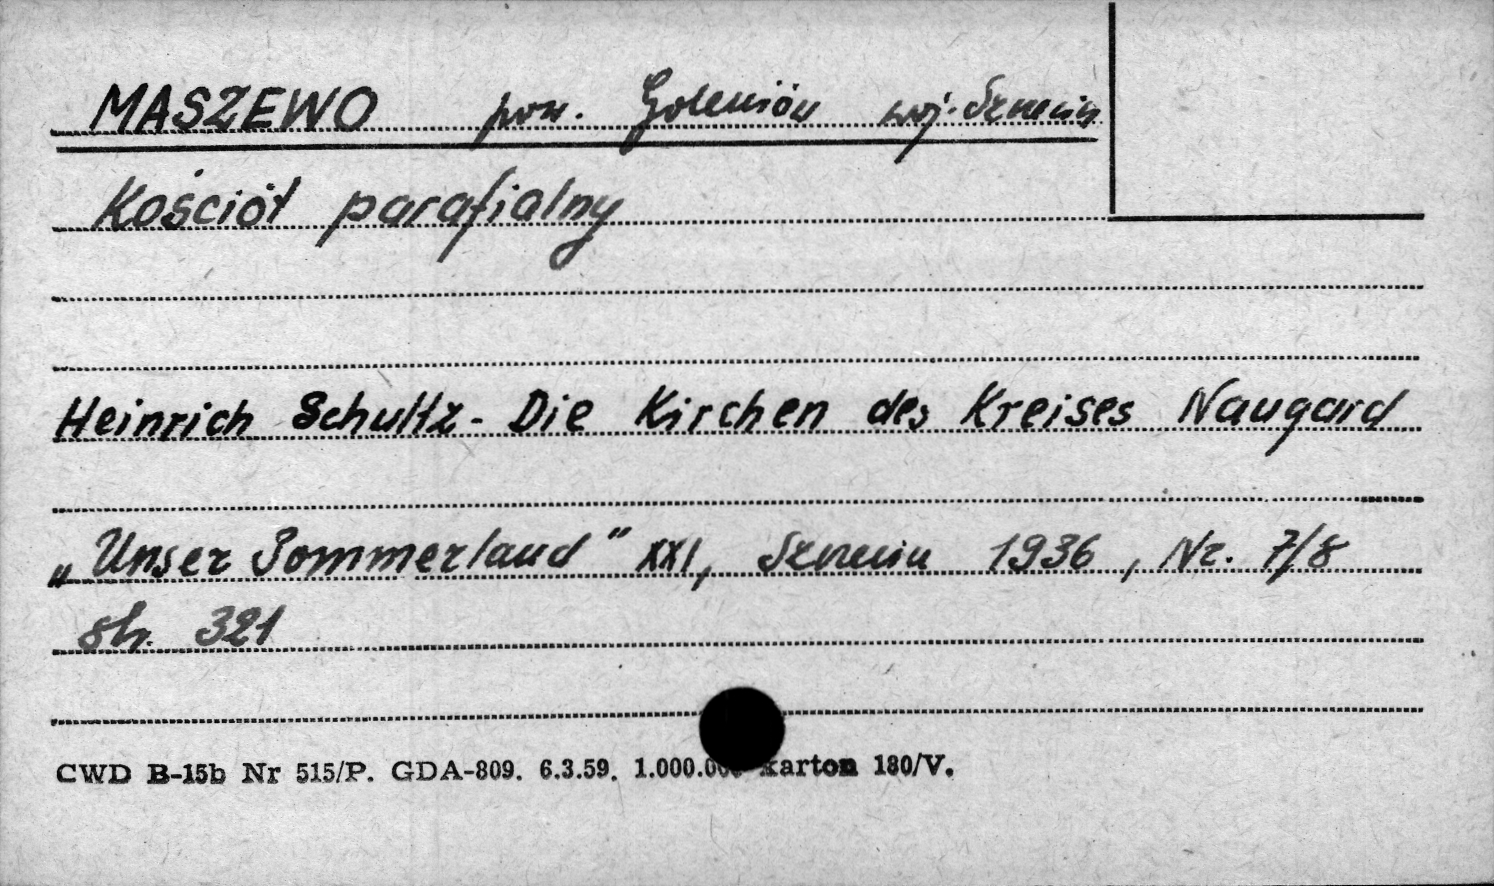 MASZEWO pow. Goleniów woj. Szczecin
Kościół parafialny
Heinrich Schultz - Die Kirchen des Kreises Naugard
„Unser Pommerland" XXI, Szczecin 1936, Nr. 7/8
str. 321
CWD B-15b Nr 515/P. GDA-809. 6.3.59. 1.000.000 karton 180/V.